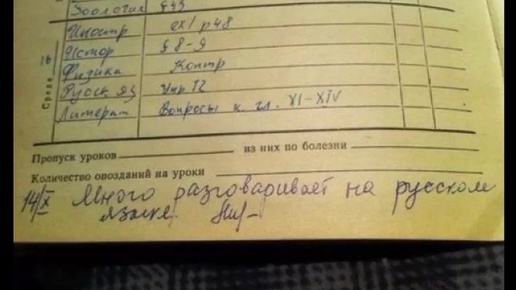 Зоология § 43
Иностр ex 1 p 48
Истор § 8-9
Физика Контр
Русск яз Упр 72
Литерат Вопросы к гл. XI-XIV
Среда 16
Пропуск уроков из них по болезни
Количество опозданий на уроки
14/X Много разговаривает на русском
языке.